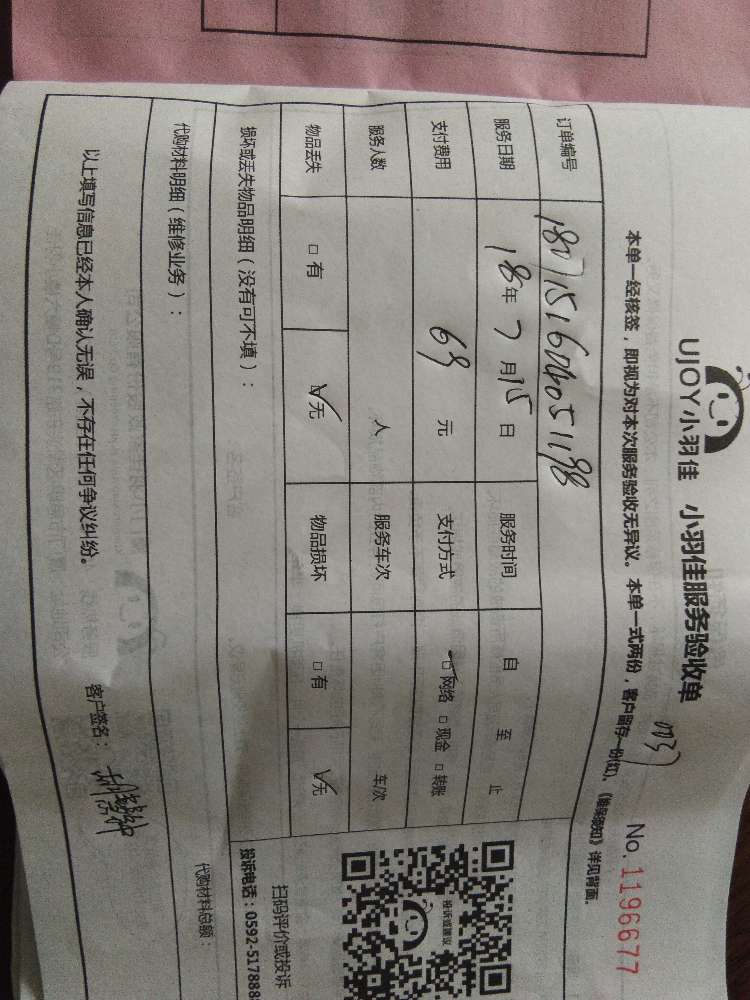 UJOY小羽佳 小羽佳服务验收单 No.1196677
0037
本单一经核签，即视为对本次服务验收无异议。本单一式两份，客户留存一份(红)，《维保须知》详见背面。
订单编号 1807151604051198
服务日期 18年7月15日 服务时间 自 至 止
支付费用 69元 支付方式 ☑网络 □现金 □转账
服务人数 人 服务车次 车/次
物品丢失 □有 ☑无 物品损坏 □有 ☑无
损坏或丢失物品明细（没有可不填）：
代购材料明细（维修业务）： 代购材料总额：
以上填写信息已经本人确认无误，不存在任何争议纠纷。 客户签名：
投诉或建议
扫码评价或投诉
投诉电话：0592-517888